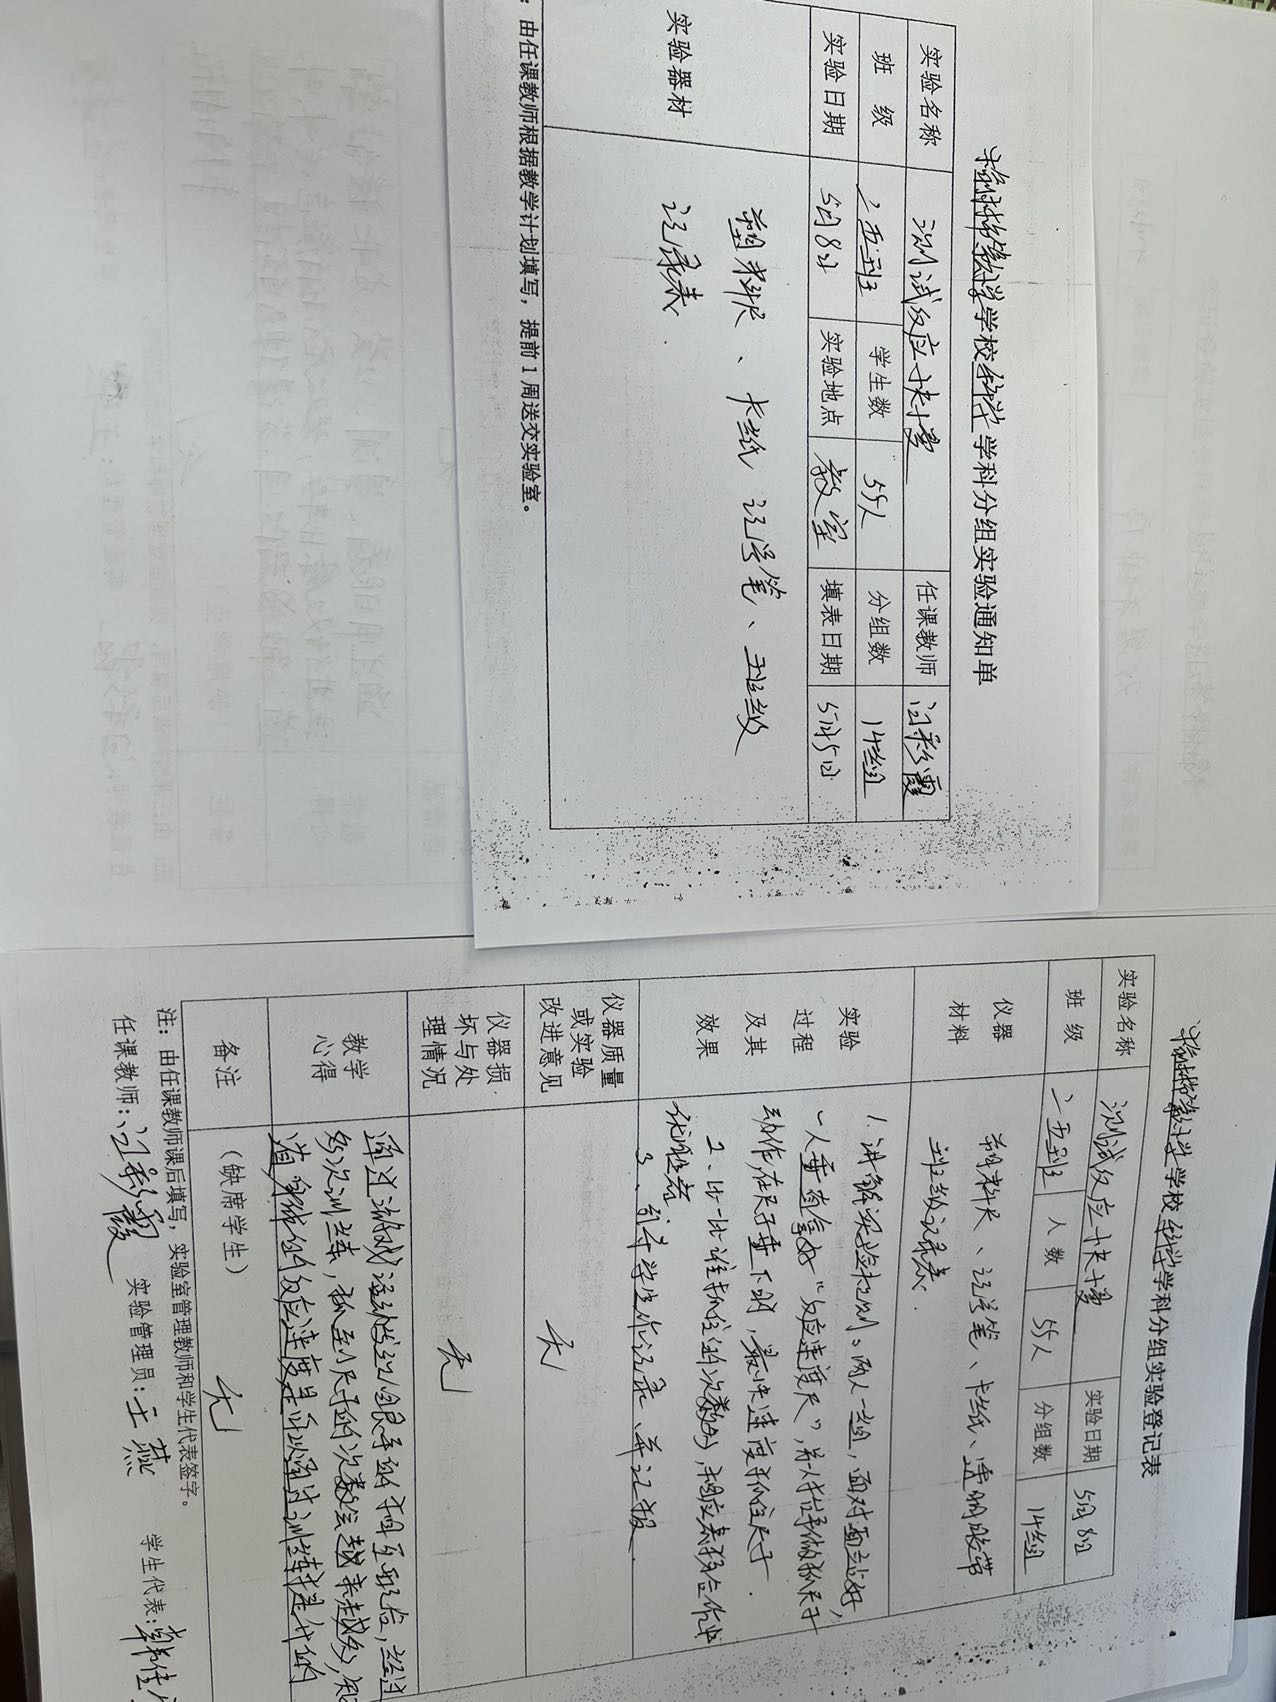 学校科学学科分组实验通知单
实验名称 测试反应快慢 任课教师 汪彩霞
班 级 二五班 学生数 55人 分组数 14组
实验日期 5月8日 实验地点 教室 填表日期 5月5日
实验器材
塑料尺、卡纸 记号笔、班级
记录表.
：由任课教师根据教学计划填写，提前1周送交实验室。
学校科学学科分组实验登记表
实验名称 测试反应快慢 实验日期 5月8日
班 级 二五班 人 数 55人 分组数 14组
仪器
材料
塑料尺、记号笔、卡纸、透明胶带
班级记录表.
实验
过程
及其
效果
1.讲解实验规则:两人一组，面对面站好，
一人垂直拿好“反应速度尺”，另一人手做抓尺子
动作，在尺子垂下时，最快速度抓住尺子.
2、比一比谁抓住的次数多，相应表扬合作中
优胜者
3、引导学生作记录、并汇报.
仪器质量
或实验
改进意见
无
仪器损
坏与处
理情况
无
教学
心得
通过游戏活动 眼手的相互配合，经过
多次训练，抓到尺子的次数会越来越多，知
道身体的反应速度是可以通过训练提升的
备注 （缺席学生） 无
注：由任课教师课后填写，实验室管理教师和学生代表签字。
任课教师：汪彩霞 实验管理员：王燕 学生代表：